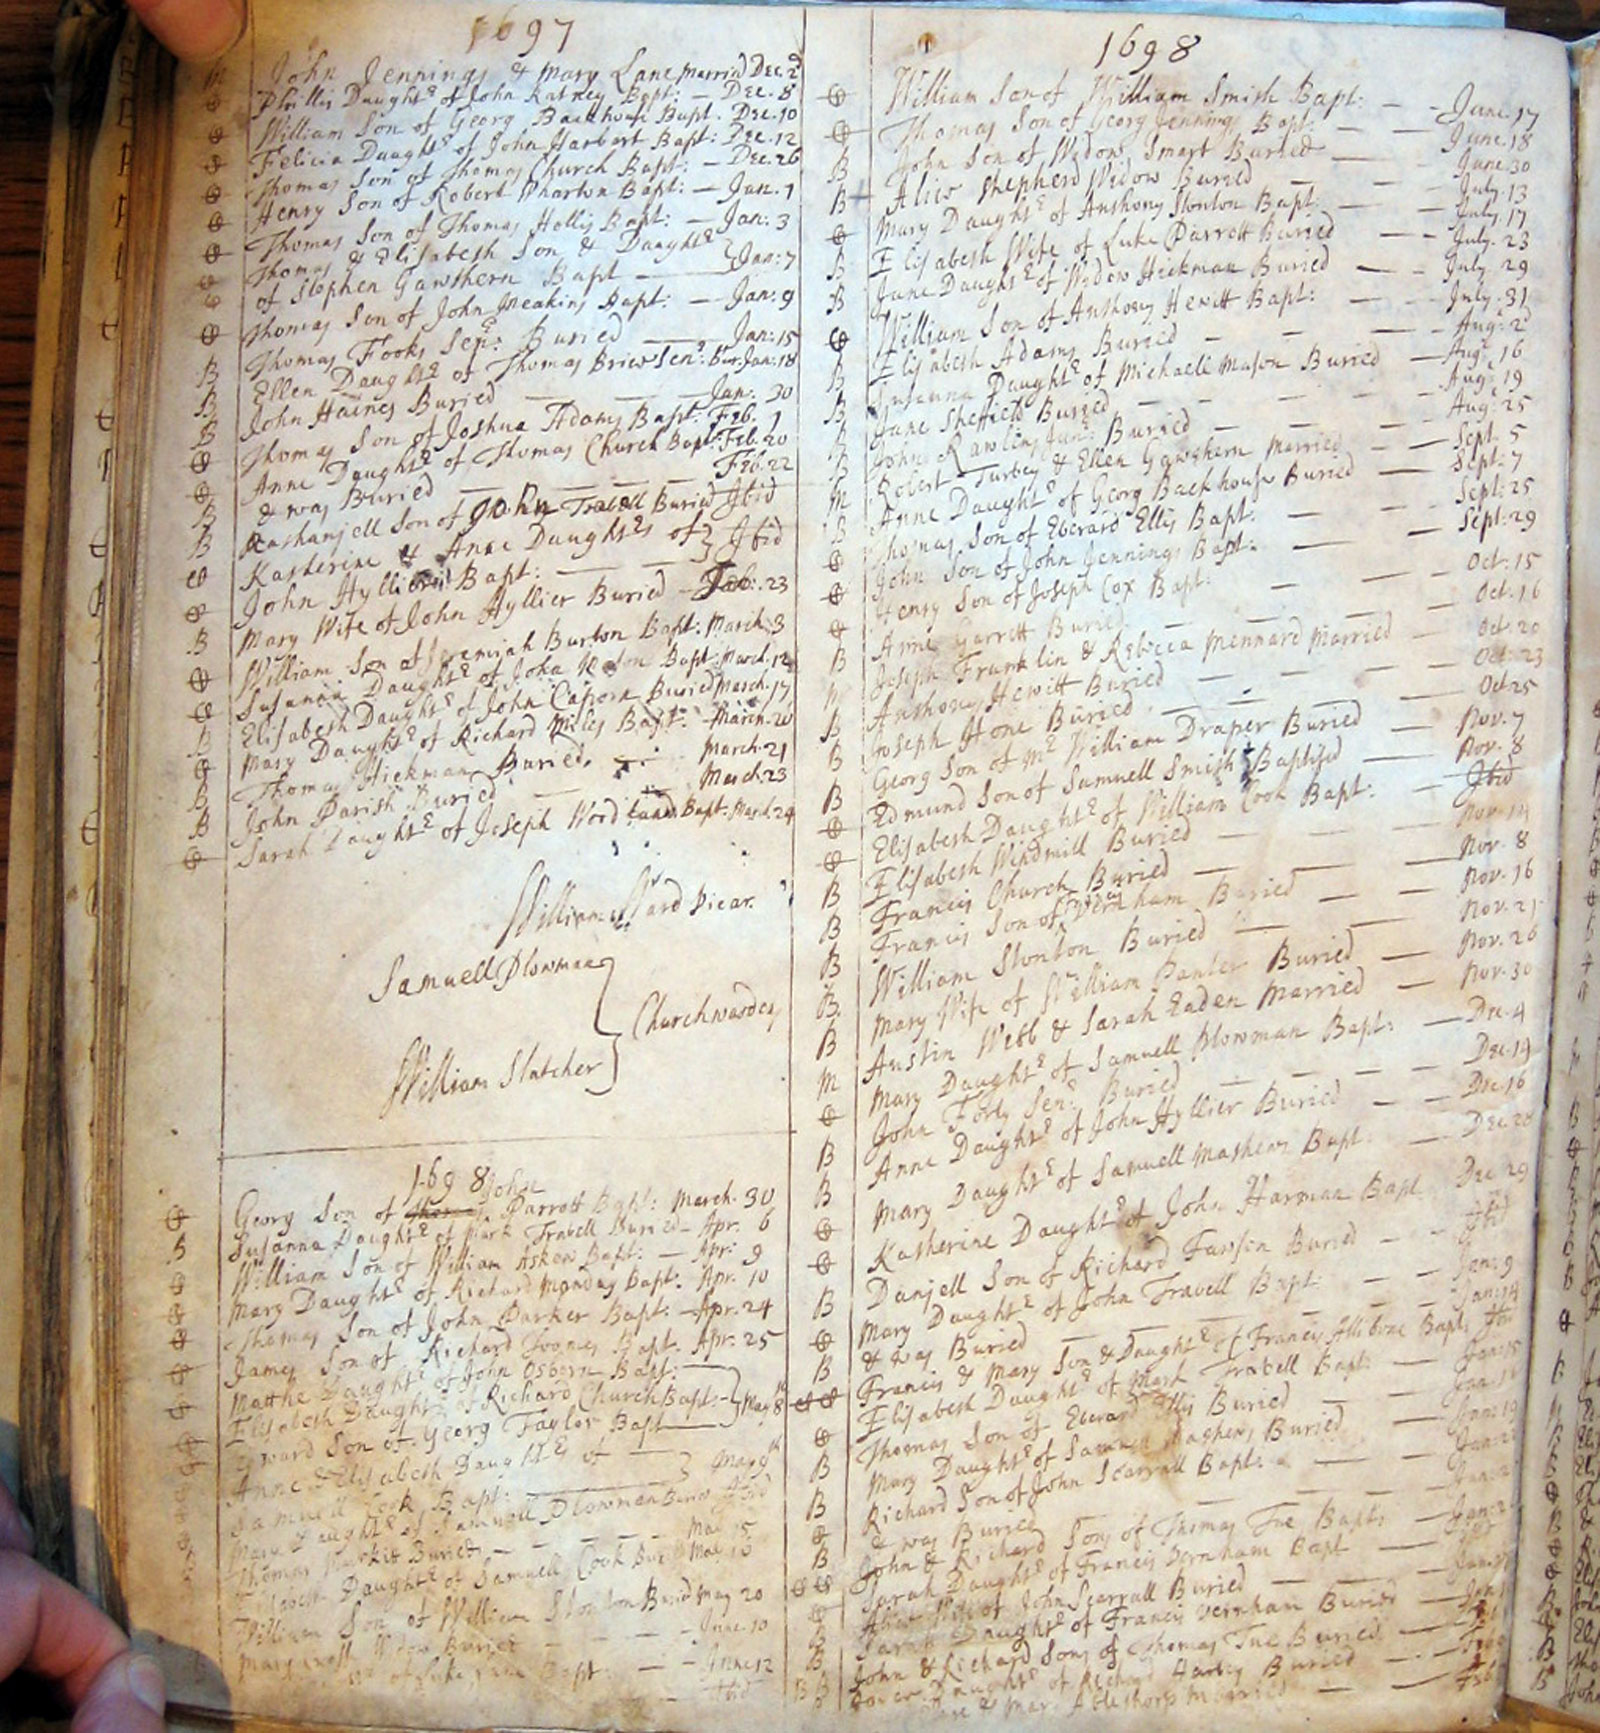 1697
John Jennings & Mary Lane married Dec. 2
Phillis Daughtr of John Katney Bapt: — Dec. 8
William Son of Georg Backhouse Bapt. Dec. 10
Felicia Daughtr of John Harbart Bapt: Dec. 12
Thomas Son of Thomas Church Bapt: — Dec. 26
Henry Son of Robert Wharton Bapt: — Jan. 1
Thomas Son of Thomas Hollis Bapt: — Jan: 3
Thomas & Elisabeth Son & Daughtr
of Stephen Gawthern Bapt — Jan: 7
Thomas Son of John Meakins Bapt: — Jan: 9
Thomas Fooks Senr: Buried — Jan: 15
Ellen Daughtr of Thomas Brier Senr: Bur. Jan: 18
John Haines Buried — Jan: 30
Thomas Son of Joshua Adams Bapt: Feb. 1
Anne Daughtr of Thomas Church Bapt: Feb. 20
& was Buried — Feb. 22
Nathanjell Son of John Travell Buried Ibid
Katherine & Anne Daughtrs of
John Hyllier Bapt: — Ibid
Mary Wife of John Hyllier Buried — Feb: 23
William Son of Jeremijah Burton Bapt. March. 3
Susanna Daughtr of John Bapt March. 12
Elisabeth Daughtr of John Caporn Buried March. 17
Mary Daughtr of Richard Miles Bapt. March. 20
Thomas Hickman Buried. March. 21
John Parish Buried March 23
Sarah Daughtr of Joseph Bapt: March. 24
William Ward Vicar.
Samuell Plowman
Churchwardens
William Slatcher
1698
Georg Son of John Parrott Bapt: March. 30
Susanna Daughtr of Mark Travell Buried — Apr. 6
William Son of William Askew Bapt: — Apr: 9
Mary Daughtr of Richard Monday Bapt. Apr. 10
Thomas Son of John Parker Bapt: — Apr. 24
James Son of Richard Toones Bapt. Apr. 25
Matthe Daughtr of John Osborn Bapt:
Elisabeth Daughtr of Richard Church Bapt. May 8
Edward Son of Georg Taylor Bapt
Anne & Elisabeth Daughtrs of
Samuell Cook Bapt: May 9
Mary Daughtr of Samuell Plowman Buried Ibid
Thomas Buried — May 15
Daughtr of Samuell Cook Bur: May 16
William Son of William Stonton Buried May 20
Mary Widow Buried — June. 10
of Luke Bapt: — June 12
Ibid
1698
William Son of William Smith Bapt: — June. 17
Thomas Son of Georg Jennings Bapt: — June. 18
John Son of Widow Smart Buried — June. 30
Alice Shepherd Widow Buried — July. 13
Mary Daughtr of Anthony Stonton Bapt: July. 17
Elisabeth Wife of Luke Parrett Buried July. 23
Jane Daughtr of Widow Hickman Buried — July. 29
William Son of Anthony Hewitt Bapt: — July. 31
Elisabeth Adams Buried — Augt: 2
Susanna Daughtr of Michaell Mason Buried — Augt 16
Jane Sheffield Buried — Augt: 19
John Rawlins Junr: Buried — Augt: 25
Robert Turbey & Ellen Gawthern Married — Sept. 5
Anne Daughtr of Georg Backhouse Buried — Sept. 7
Thomas Son of Everard Ellis Bapt. — Sept: 25
John Son of John Jennings Bapt: — Sept: 29
Henry Son of Joseph Cox Bapt: — Oct. 15
Anne Garrett Buried — Oct. 16
Joseph Franklin & Rebecca Mennard Married — Oct. 20
Anthony Hewitt Buried — Oct: 23
Joseph Hone Buried — Oct 25
Georg Son of Mr William Draper Buried — Nov. 7
Edmund Son of Samuell Smith Baptised — Nov. 8
Elisabeth Daughtr of William Cook Bapt: — Ibid
Elisabeth Windmill Buried — Nov. 14
Francis Church Buried — Nov. 8
Francis Son of Vernham Buried — Nov. 16
William Stonton Buried — Nov. 21
Mary Wife of William Panter Buried — Nov. 26
Austin Webb & Sarah Eaden Married — Nov. 30
Mary Daughtr of Samuell Plowman Bapt: — Dec. 4
John Forty Senr: Buried — Dec. 14
Anne Daughtr of John Hyllier Buried — Dec. 16
Mary Daughtr of Samuell Mathews Bapt. — Dec 28
Katherine Daughtr of John Harman Bapt Dec 29
Danjell Son of Richard Fawsin Buried — Ibid
Mary Daughtr of John Travell Bapt: — Jan: 9
& was Buried — Jan: 14
Francis & Mary Son & Daughtr of Francis Allibone Bapt: Ibid
Elisabeth Daughtr of Mark Travell Bapt: — Jan: 15
Thomas Son of Everard Ellis Buried — Jan.
Mary Daughtr of Samuell Mathews Buried — Jan: 19
Richard Son of John Scarrall Bapt: — Jan:
& was Buried — Jan:
John & Richard Sons of Thomas Tue Bapt: — Jan: 2
Sarah Daughtr of Francis Vernham Bapt
Alice Wife of John Scarrall Buried — Jan:
Sarah Daughtr of Francis Vernham Buried — Jan
John & Richard Sons of Thomas Tue Buried — Feb
Daughtr of Richard Hartley Buried — Feb
& Mary — Feb